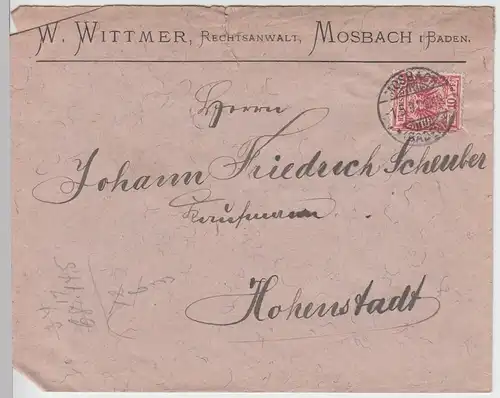 W. WITTMER, RECHTSANWALT, MOSBACH I/BADEN.
10
Herrn
Johann Friedrich Scheuber
Kaufmann
Hohenstadt